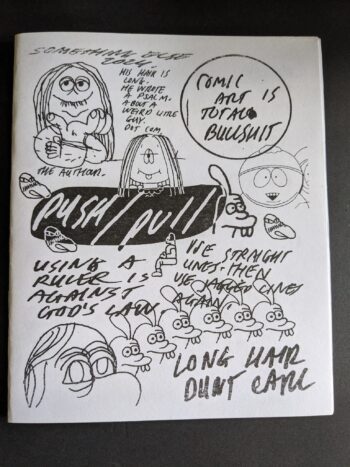 SOMETHING ELSE
2024.
HIS HAIR IS
LONG.
HE WROTE
A PSALM.
ABOUT A
WEIRD LITTLE
GUY.
DOT COM
COMIC
ART IS
TOTAL
BULLSHIT
THE AUTHOR.
push/pull
USING A
RULER IS
AGAINST
GOD'S LAW
USE STRAIGHT
LINES. THEN
USE JAGGED LINES
AGAIN
LONG HAIR
DUNT CARE